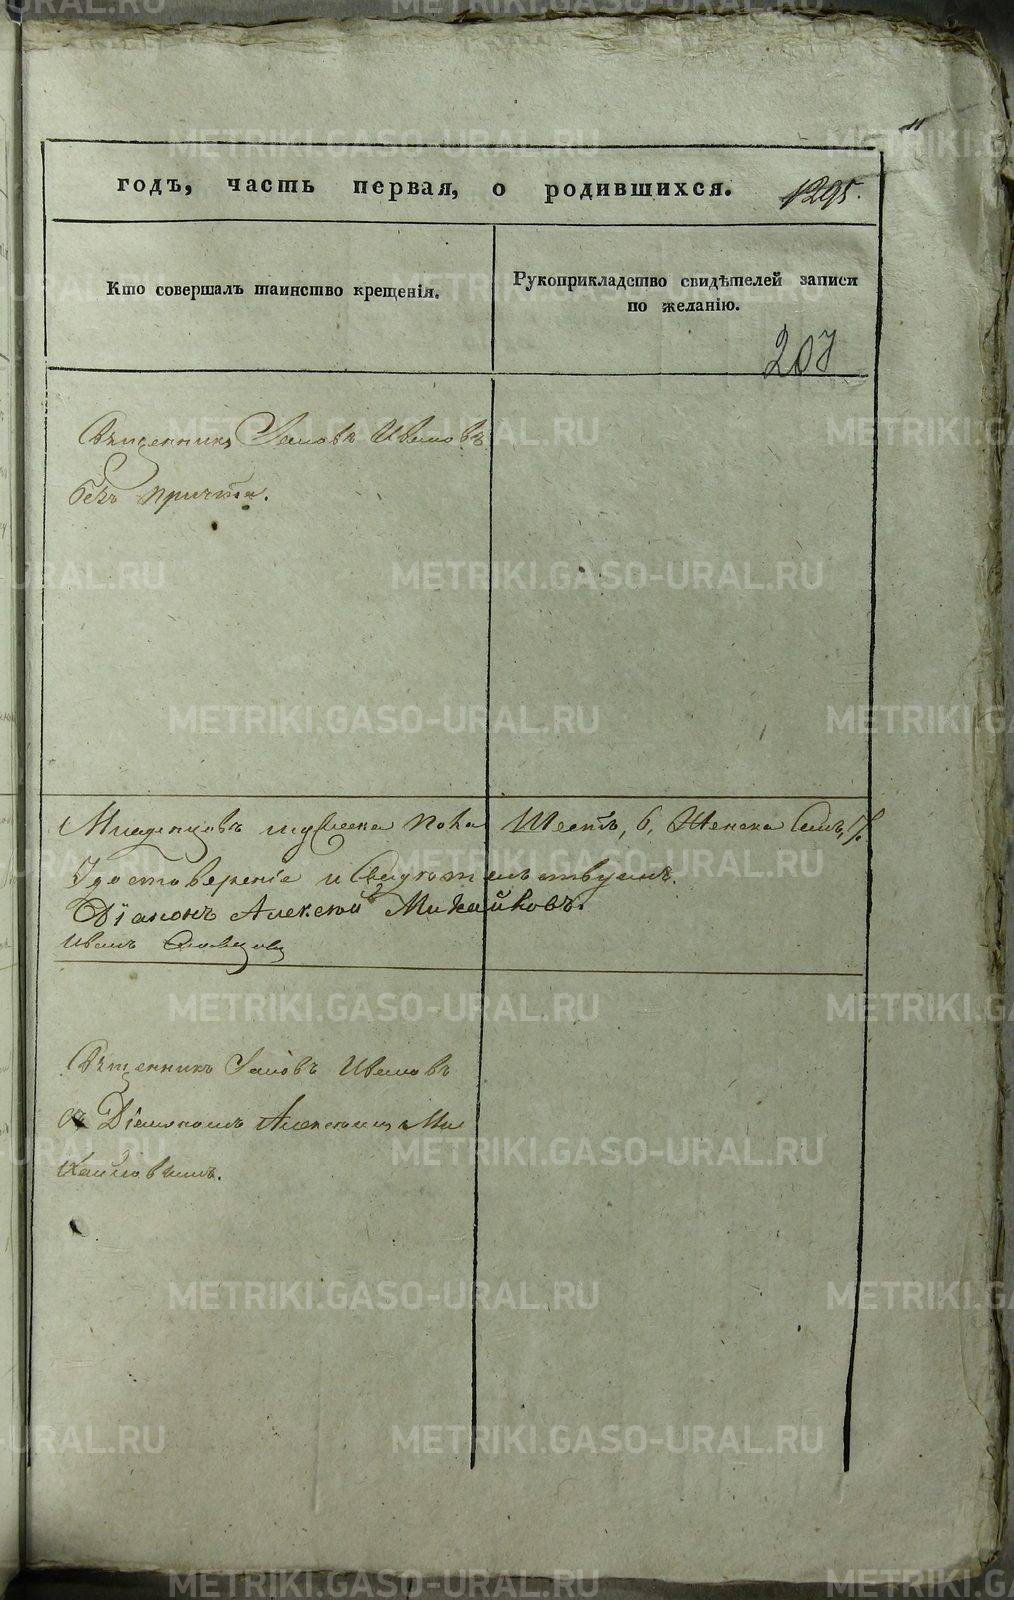 11
годъ, часть первая, о родившихся. 1295.
Кто совершалъ таинство крещенія.
Рукоприкладство свидѣтелей записи
по желанію.
207
Священникъ Іаковъ Ивановъ
безъ причта.
Младенцовъ мужеска пола Шесть, 6, Женска Семь, 7.
Удостовереніе и Свидетельствуемъ.
Діаконъ Алексей Михайловъ.
Иванъ Словцовъ
Священникъ Іаковъ Ивановъ
съ Діакономъ Алексеемъ Ми
хайловымъ.
METRIKI.GASO-URAL.RU